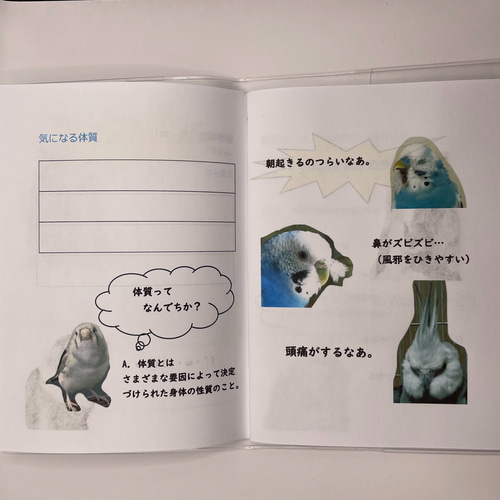 気になる体質
体質って
なんでちか？
A. 体質とは
さまざまな要因によって決定
づけられた身体の性質のこと。
朝起きるのつらいなあ。
鼻がズビズビ…
（風邪をひきやすい）
頭痛がするなあ。